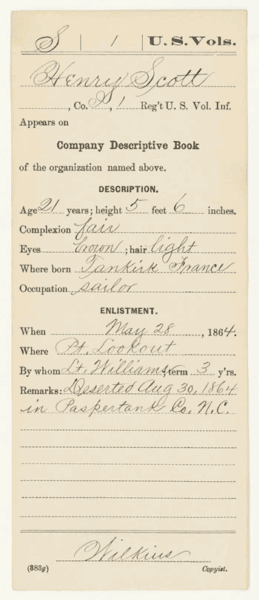 S | 1 | U.S. Vols.
Henry Scott
, Co. S, 1 Reg't U. S. Vol. Inf.
Appears on
Company Descriptive Book
of the organization named above.
DESCRIPTION.
Age 21 years; height 5 feet 6 inches.
Complexion fair
Eyes brown; hair light
Where born Tankirk France
Occupation sailor
ENLISTMENT.
When May 28, 1864.
Where Pt. Lookout
By whom Lt. Williams; term 3 y'rs.
Remarks: Deserted Aug 30, 1864
in Paspertank Co. N.C.
Wilkins
(383g) Copyist.